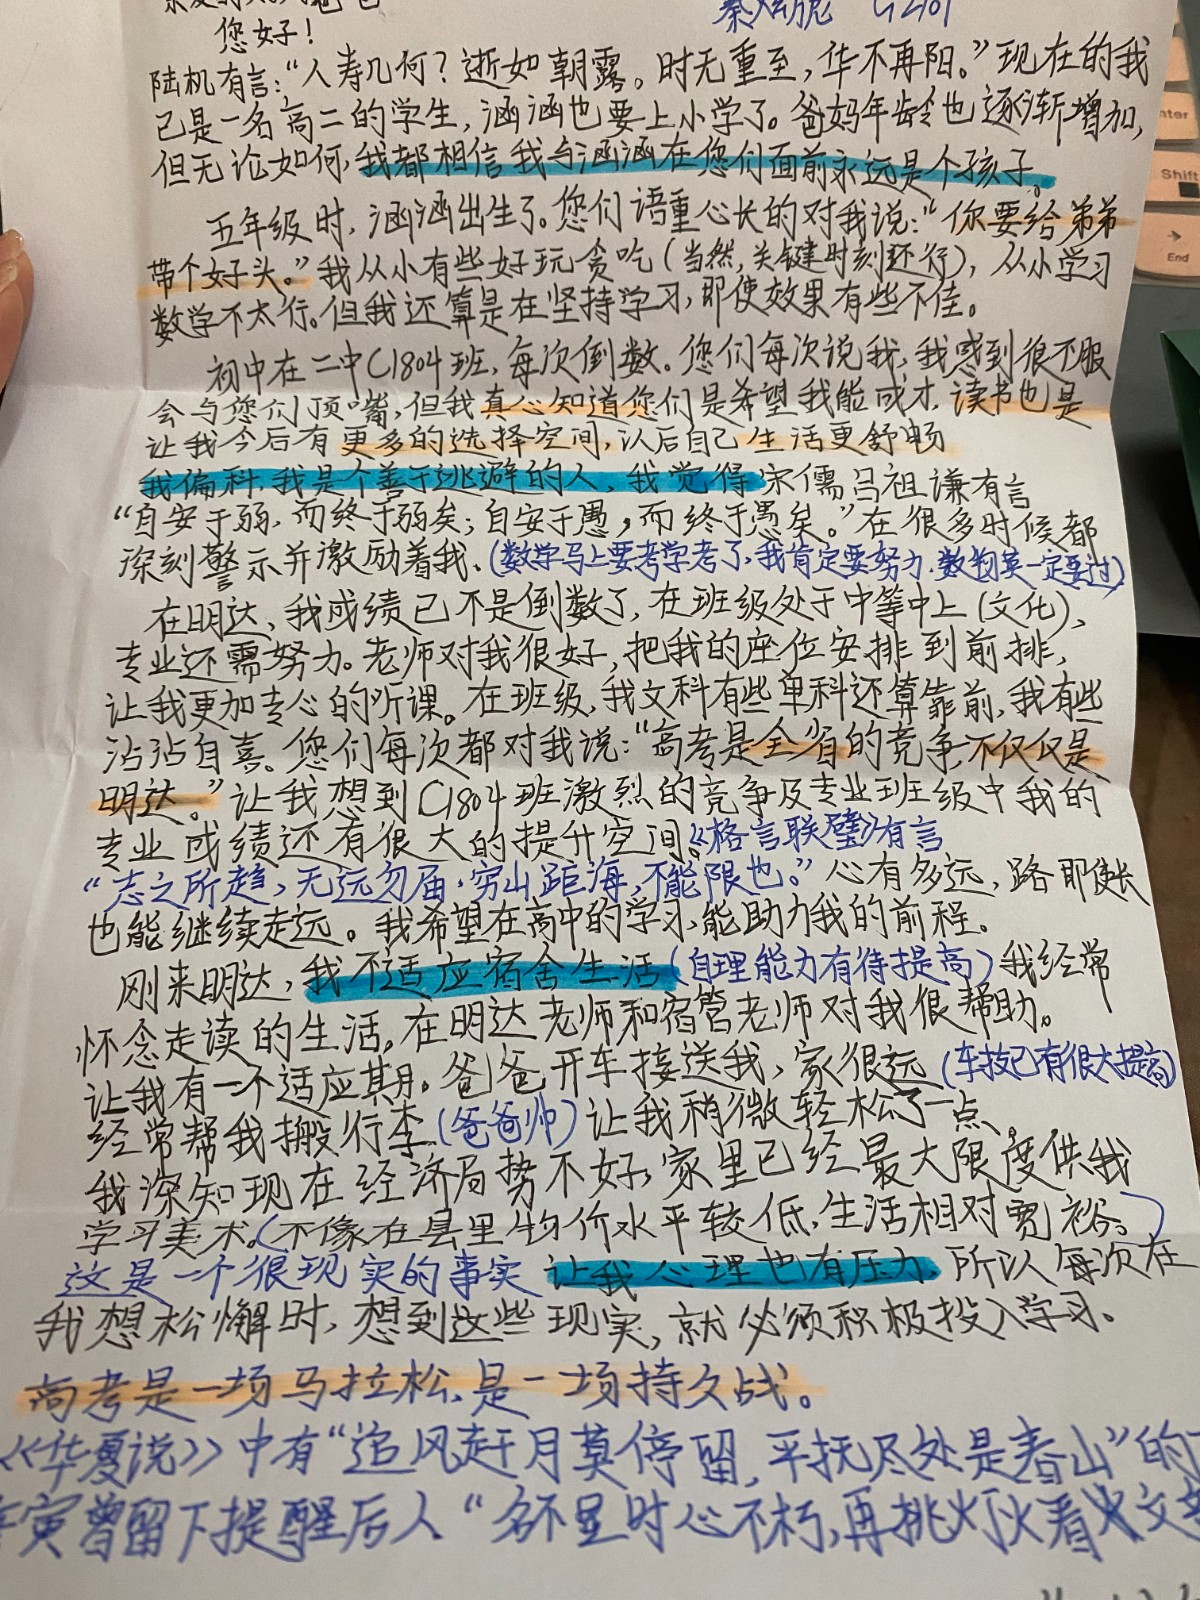 您好！
陆机有言：“人寿几何？逝如朝露。时无重至，华不再阳。”现在的我
已是一名高二的学生，涵涵也要上小学了。爸妈年龄也逐渐增加，
但无论如何，我都相信我与涵涵在您们面前永远是个孩子。
五年级时，涵涵出生了。您们语重心长的对我说：“你要给弟弟
带个好头。”我从小有些好玩贪吃（当然，关键时刻还行），从小学习
数学不太行。但我还算是在坚持学习，即使效果有些不佳。
初中在二中C1804班，每次倒数。您们每次说我，我感到很不服
会与您们顶嘴，但我真心知道您们是希望我能成才，读书也是
让我今后有更多的选择空间，以后自己生活更舒畅
我偏科，我是个善于逃避的人，我觉得宋儒吕祖谦有言
“自安于弱，而终于弱矣；自安于愚，而终于愚矣。”在很多时候都
深刻警示并激励着我、(数学马上要考学考了，我肯定要努力，数物英一定要过)
在明达，我成绩已不是倒数了，在班级处于中等中上(文化)、
专业还需努力。老师对我很好，把我的座位安排到前排，
让我更加专心的听课。在班级，我文科有些单科还算靠前，我有些
沾沾自喜。您们每次都对我说：“高考是全省的竞争，不仅仅是
明达。”让我想到C1804班激烈的竞争及专业班级中我的
专业成绩还有很大的提升空间。《格言联璧》有言
“志之所趋，无远勿届，穷山距海，不能限也。”心有多远，路即使长
也能继续走远。我希望在高中的学习，能助力我的前程。
刚来明达，我不适应宿舍生活(自理能力有待提高)我经常
怀念走读的生活。在明达老师和宿管老师对我很帮助。
让我有一个适应期。爸爸开车接送我，家很远(车技已有很大提高)
经常帮我搬行李(爸爸帅)让我稍微轻松了一点。
我深知现在经济局势不好，家里已经最大限度供我
学习美术。(不像在县里物价水平较低，生活相对宽裕。)
这是一个很现实的事实 让我心理也有压力，所以每次在
我想松懈时，想到这些现实，就必须积极投入学习。
高考是一场马拉松，是一场持久战。
《华夏说》中有“追风赶月莫停留，平抚尽处是春山”的
寅曾留下提醒后人“名不显时心不朽，再挑灯火看文
Enter
Shift
End